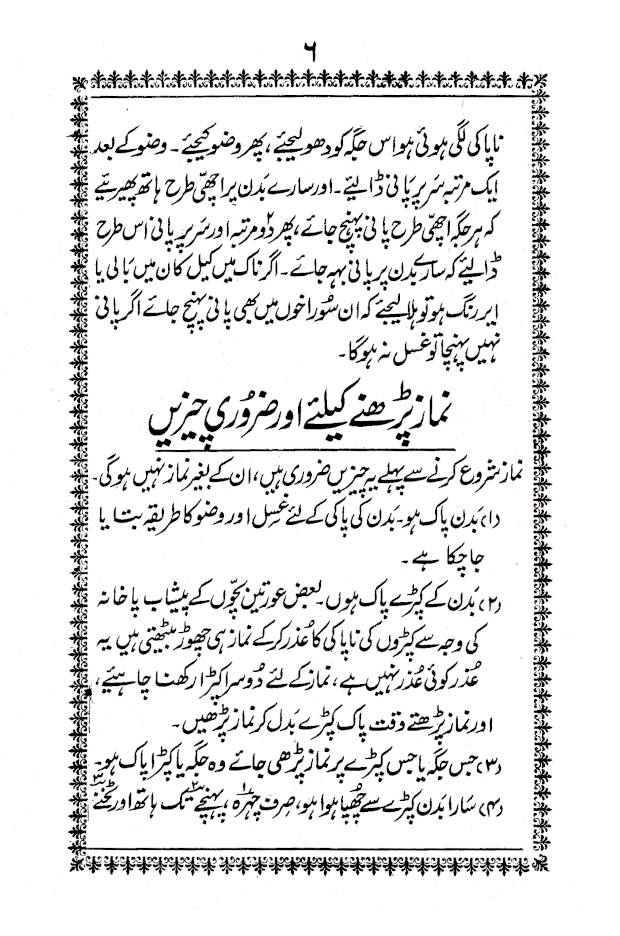 ۶
ناپاکی لگی ہوئی ہو اس جگہ کو دھو لیجئے، پھر وضو کیجئے۔ وضو کے بعد
ایک مرتبہ سر پر پانی ڈالیے۔ اور سارے بدن پر اچھی طرح ہاتھ پھیریئے
کہ ہر جگہ اچھی طرح پانی پہنچ جائے، پھر دو۲ مرتبہ اور سر پر پانی اس طرح
ڈالیئے کہ سارے بدن پر پانی بہہ جائے۔ اگر ناک میں کیل کان میں بالی یا
ایررنگ ہو تو ہلا لیجئے کہ ان سُوراخوں میں بھی پانی پہنچ جائے اگر پانی
نہیں پہنچا تو غسل نہ ہوگا۔
نماز پڑھنے کیلئے اور ضروری چیزیں
نماز شروع کرنے سے پہلے یہ چیزیں ضروری ہیں، ان کے بغیر نماز نہیں ہوگی۔
(۱) بدن پاک ہو۔ بدن کی پاکی کے لئے غسل اور وضو کا طریقہ بتایا
جاچکا ہے۔
(۲) بَدن کے کپڑے پاک ہوں۔ بعض عورتیں بچّوں کے پیشاب پاخانہ
کی وجہ سے کپڑوں کی ناپاکی کا عُذر کرکے نماز ہی چھوڑ بیٹھتی ہیں یہ
عُذر کوئی عُذر نہیں ہے، نماز کے لئے دُوسرا کپڑا رکھنا چاہئیے،
اور نماز پڑھتے وقت پاک کپڑے بَدل کر نماز پڑھیں۔
(۳) جس جگہ یا جس کپڑے پر نماز پڑھی جائے وہ جگہ یا کپڑا پاک ہو۔
(۴) سَارا بَدن کپڑے سے چُھپا ہوا ہو، صِرف چہرَہ، پہنچے تک ہاتھ اور ٹخنے